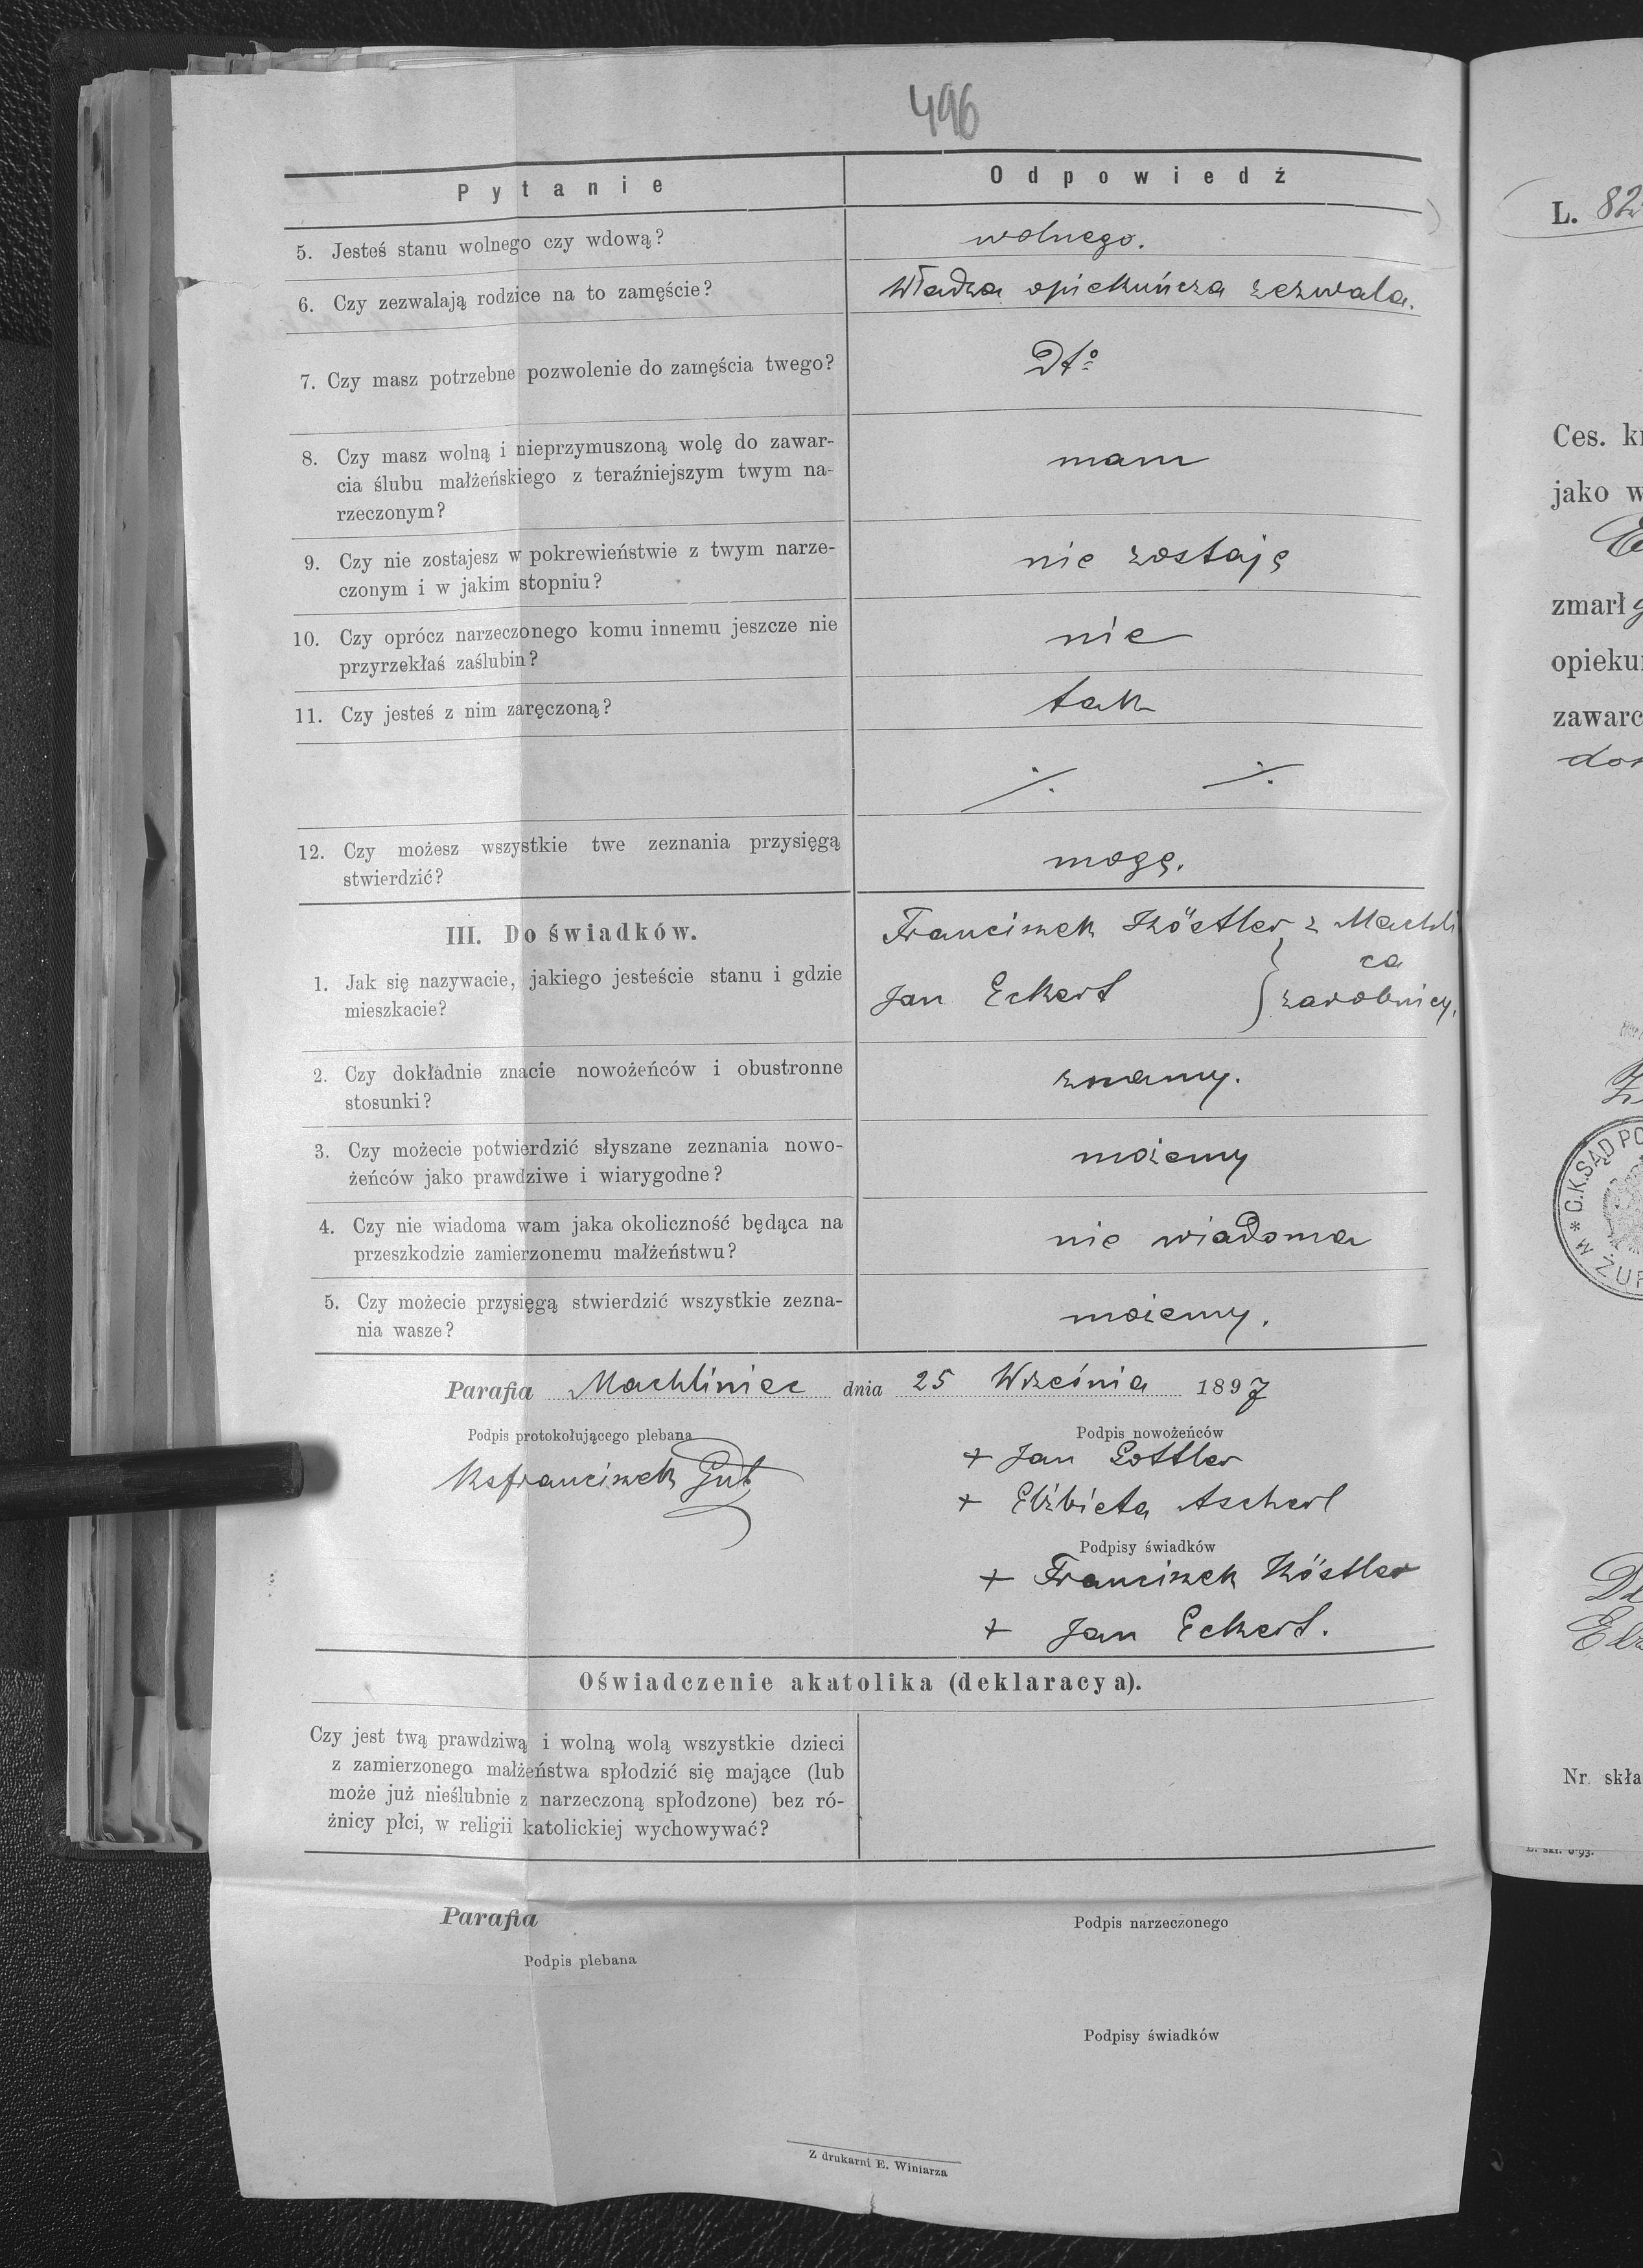 496
Pytanie
Odpowiedź
5. Jesteś stanu wolnego czy wdową?
wolnego.
6. Czy zezwalają rodzice na to zamęście?
Władza opiekuńcza zezwala.
7. Czy masz potrzebne pozwolenie do zamęścia twego?
Dto
8. Czy masz wolną i nieprzymuszoną wolę do zawar-
cia ślubu małżeńskiego z teraźniejszym twym na-
rzeczonym?
mam
9. Czy nie zostajesz w pokrewieństwie z twym narze-
czonym i w jakim stopniu?
nie zostaję
10. Czy oprócz narzeczonego komu innemu jeszcze nie
przyrzekłaś zaślubin?
nie
11. Czy jesteś z nim zaręczoną?
tak
12. Czy możesz wszystkie twe zeznania przysięgą
stwierdzić?
mogę.
III. Do świadków.
1. Jak się nazywacie, jakiego jesteście stanu i gdzie
mieszkacie?
Franciszek Köstler z Machli
ca
Jan Eckert } zarobnicy.
2. Czy dokładnie znacie nowożeńców i obustronne
stosunki?
znamy.
3. Czy możecie potwierdzić słyszane zeznania nowo-
żeńców jako prawdziwe i wiarygodne?
możemy
4. Czy nie wiadoma wam jaka okoliczność będąca na
przeszkodzie zamierzonemu małżeństwu?
nie wiadoma
5. Czy możecie przysięgą stwierdzić wszystkie zezna-
nia wasze?
możemy.
Parafia Machliniec dnia 25 Września 1897
Podpis protokołującego plebana
Ks Franciszek Gut
Podpis nowożeńców
+ Jan Gottler
+ Elżbieta Ascherl
Podpisy świadków
+ Franciszek Köstler
+ Jan Eckert.
Oświadczenie akatolika (deklaracya).
Czy jest twą prawdziwą i wolną wolą wszystkie dzieci
z zamierzonego małżeństwa spłodzić się mające (lub
może już nieślubnie z narzeczoną spłodzone) bez ró-
żnicy płci, w religii katolickiej wychowywać?
Parafia
Podpis plebana
Podpis narzeczonego
Podpisy świadków
Z drukarni E. Winiarza
L. 82
Ces. kr
jako w
zmarł
opieku
zawarc
C.K.SĄD PO
W ŻUR
Nr. skła